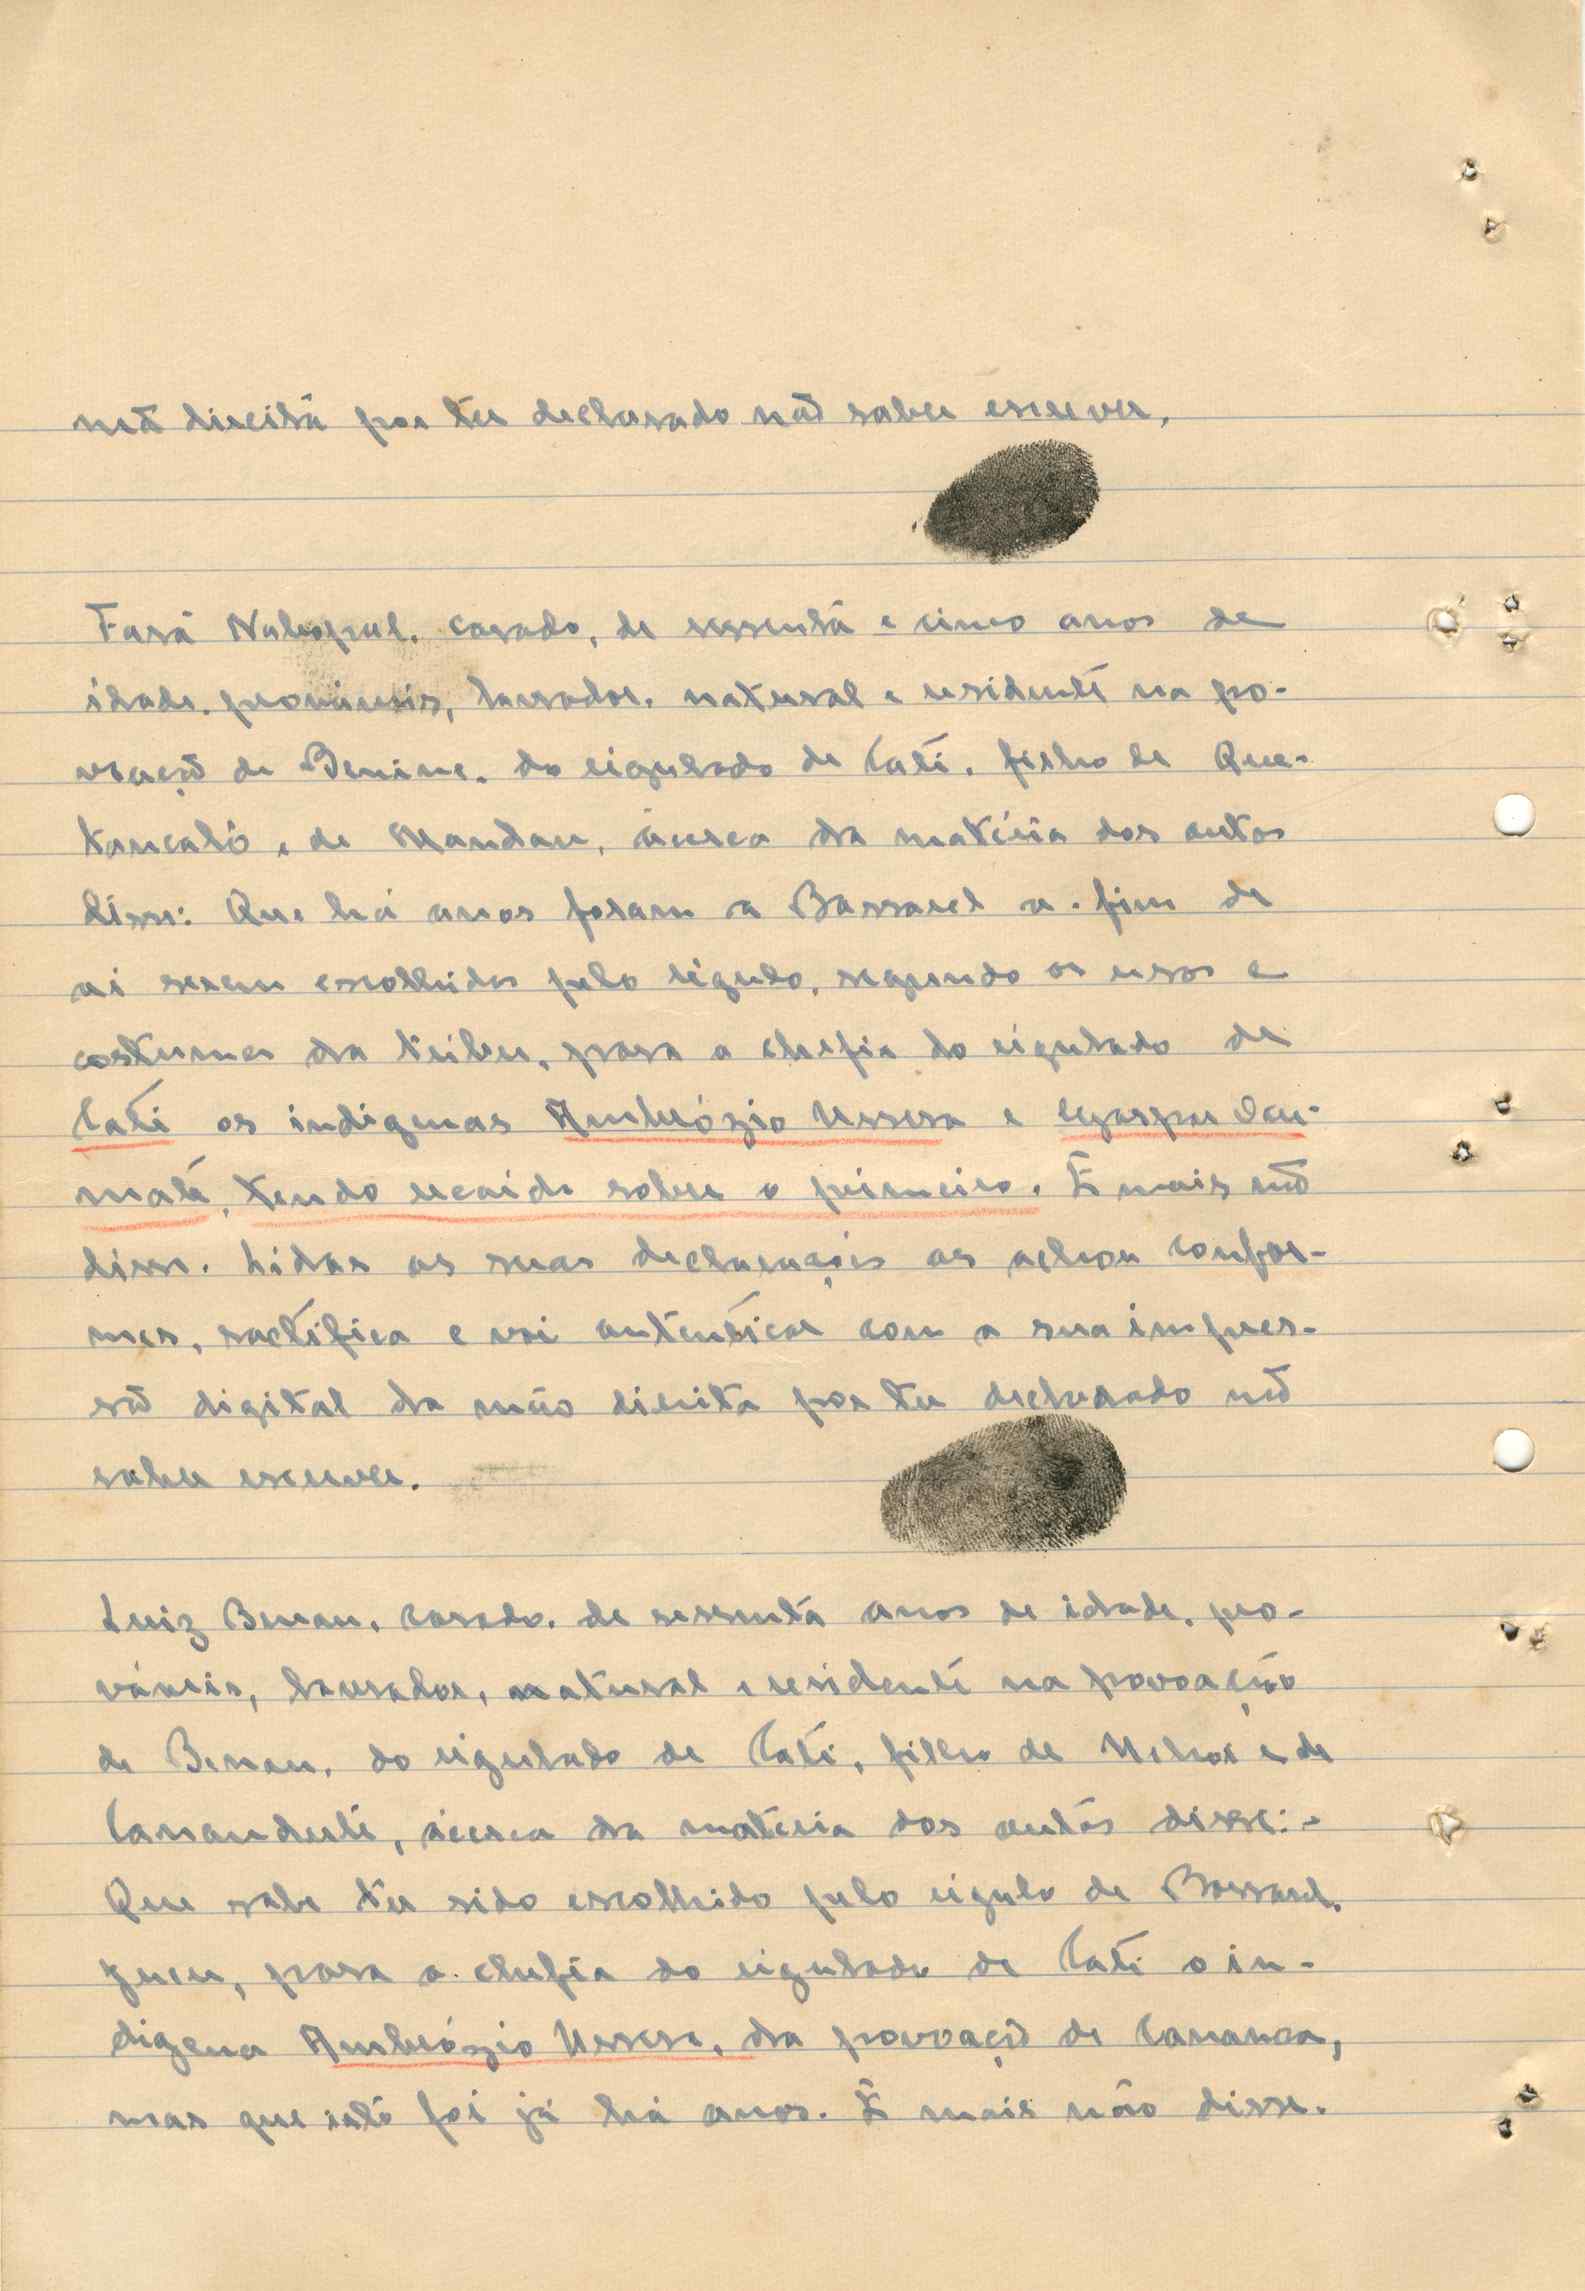 mão direita por ter declarado não saber escrever.
Fará casado, de sessenta e cinco anos de
idade, prováveis, lavrador, natural e residente na po-
voação de Benine, do regulado de Cati, filho de Que-
tancaló e de Mandau, àcerca da matéria dos autos
disse: Que há anos foram a Bassarel a-fim de
aí serem escolhidos pelo régulo, segundo os usos e
costumes da tribu, para a chefia do regulado de
Cati os indígenas Ambrózio Ussera e Gaspar Dau-
maté, tendo recaído sobre o primeiro. E mais não
disse. Lidas as suas declarações as achou confor-
mes, ractifica e vai autenticar com a sua impres-
são digital da mão direita por ter declarado não
saber escrever.
Luiz Benau, casado, de sessenta anos de idade, pro-
váveis, lavrador, natural e residente na povoação
de Benau, do regulado de Cati, filho de e de
àcerca da matéria dos autos disse:-
Que sabe ter sido escolhido pelo régulo de Bassarel,
para a chefia do regulado de Cati o in-
dígena Ambrózio Ussera, da povoação de Cananca,
mas que isto foi já há anos. E mais não disse.